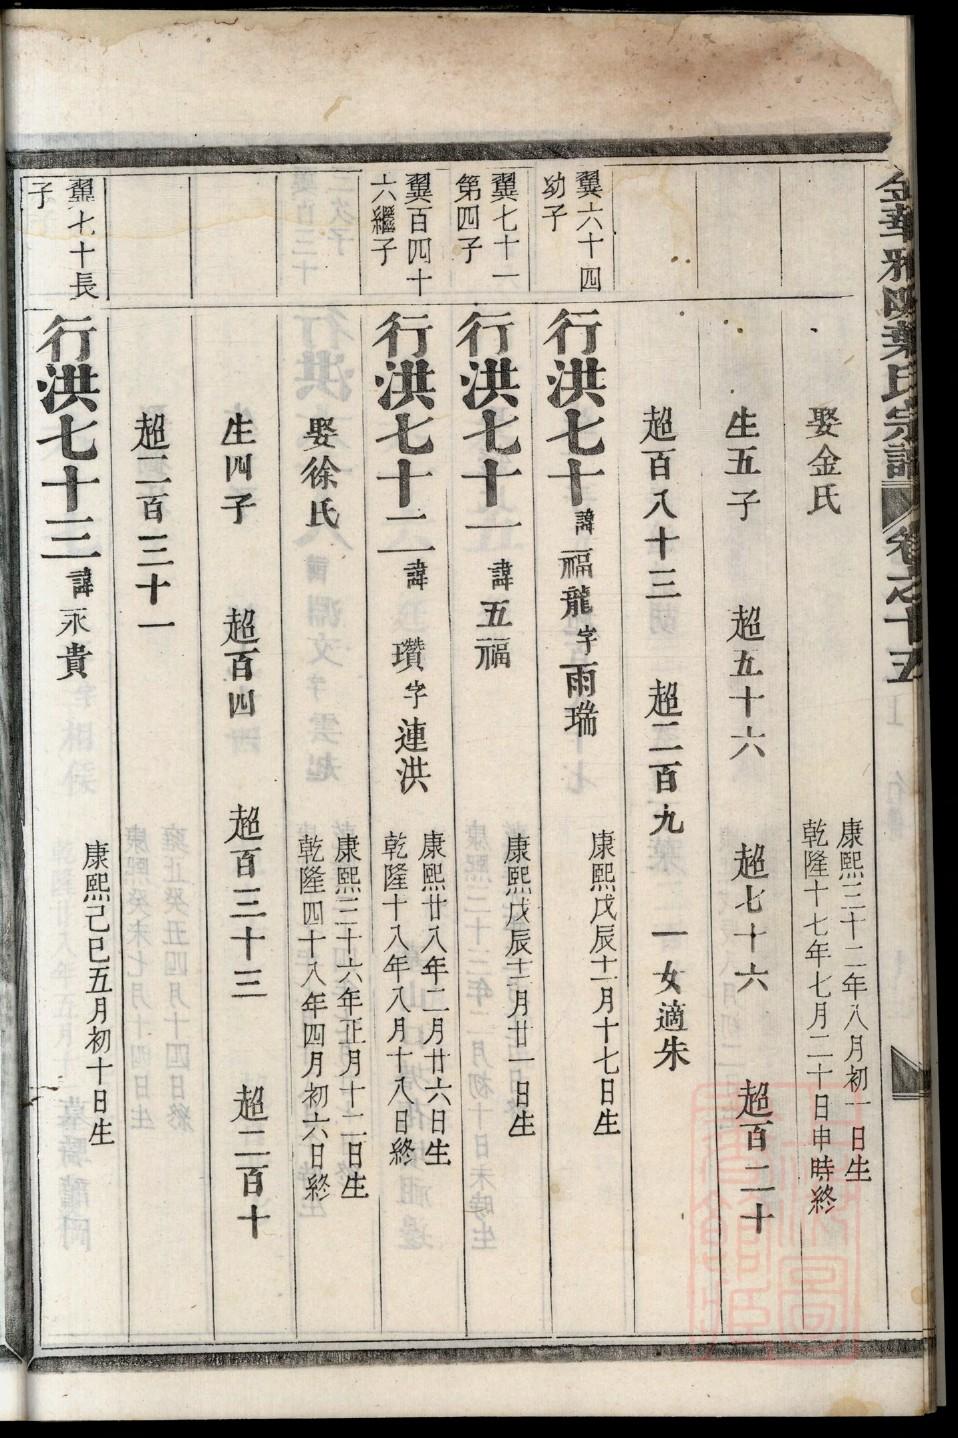 金華雅畈葉氏宗譜 卷之十五
娶金氏 康熙三十二年八月初一日生
乾隆十七年七月二十日申時終
生五子 超五十六 超七十六 超百二十
超百八十三 超二百九 一女適朱
翼六十四
幼子
行洪七十 諱福龍 字雨瑞 康熙戊辰十一月十七日生
翼七十一
第四子
行洪七十一 諱五福 康熙戊辰十二月廿一日生
翼百四十
六繼子
行洪七十二 諱瓚 字連洪 康熙廿八年二月廿六日生
乾隆十八年八月十八日終
娶徐氏 康熙三十六年正月十二日生
乾隆四十八年四月初六日終
生四子 超百四 超百三十三 超二百十
超二百三十一
翼七十長
子
行洪七十三 諱永貴 康熙己巳五月初十日生